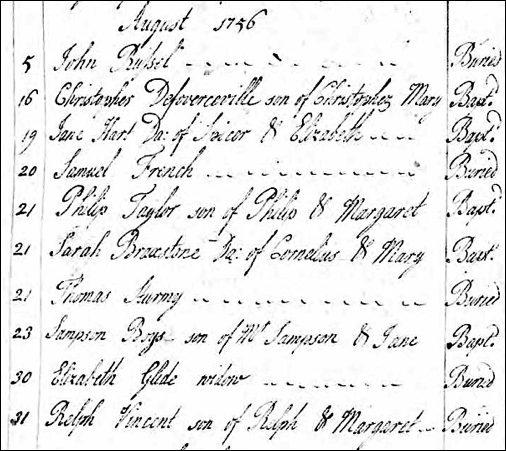 August 1756
5 John Russel Buried
16 Christopher Defoverceville son of Christopher Mary Bapt.d
19 Jane Hart Da: of & Elizabeth Bapt.d
20 Samuel French Buried
21 Philip Taylor son of Philip & Margaret Bapt.d
21 Sarah Broxstone Da: of Cornelius & Mary Bapt.
21 Thomas Buried
23 Sampson Boys son of Mr Sampson & Jane Bapt.d
30 Elizabeth Glide widow Buried
31 Relph Vincent son of Relph & Margaret Buried